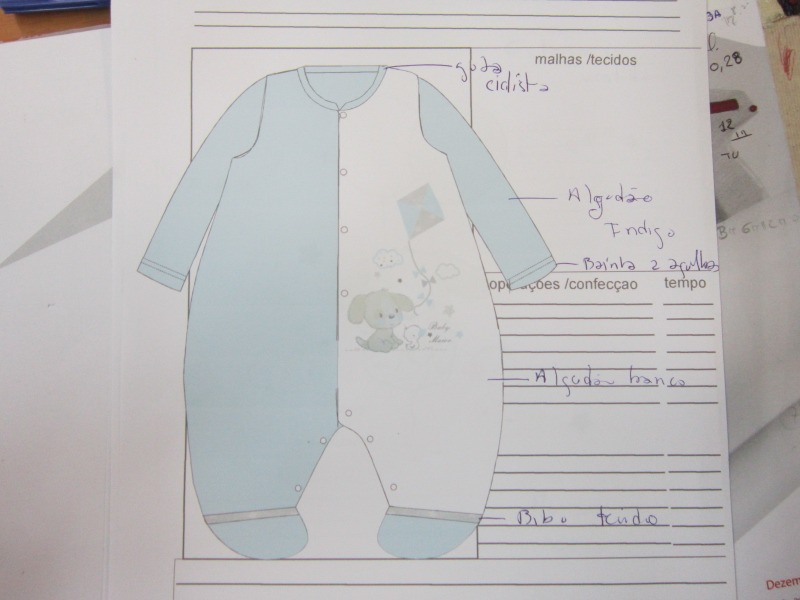 malhas /tecidos
gola
ciclista
Algodão
Indigo
Bainha 2 agulhas
operações /confecçao tempo
Baby
Algodão banco
tecido
0,28
12
Dezem